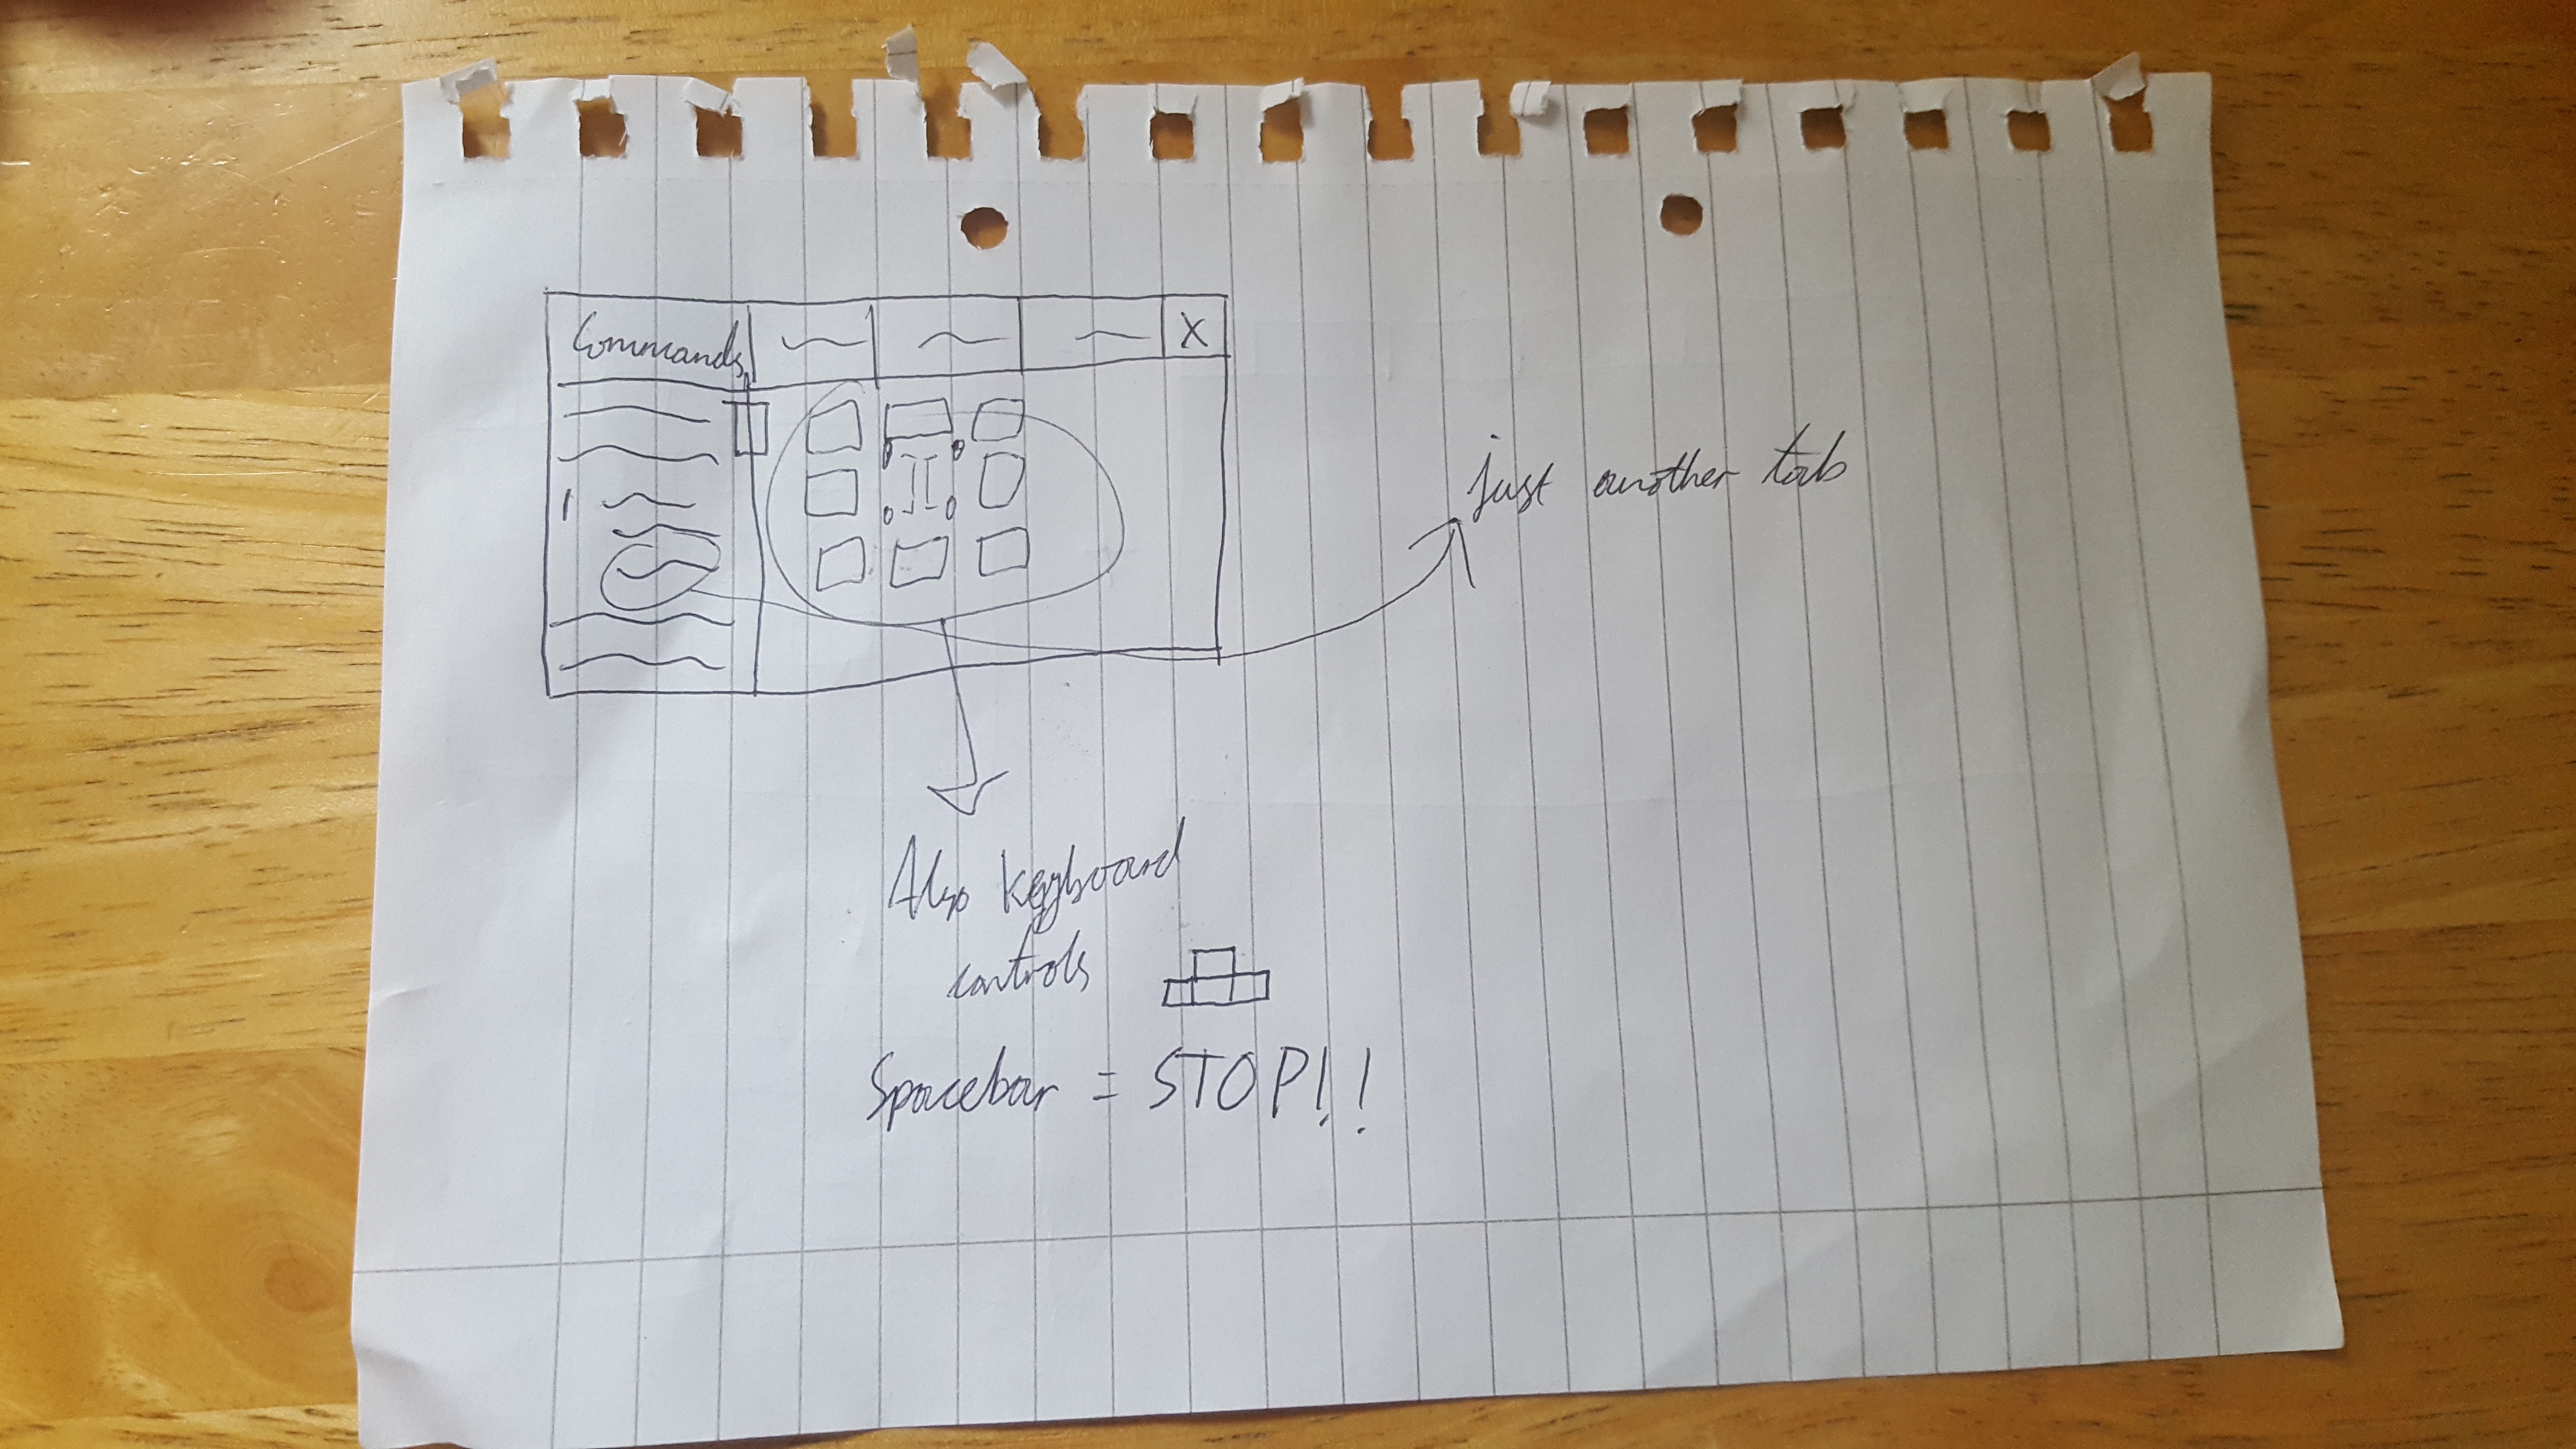 Commands
X
just another tab
Also keyboard
controls
Spacebar = STOP!!